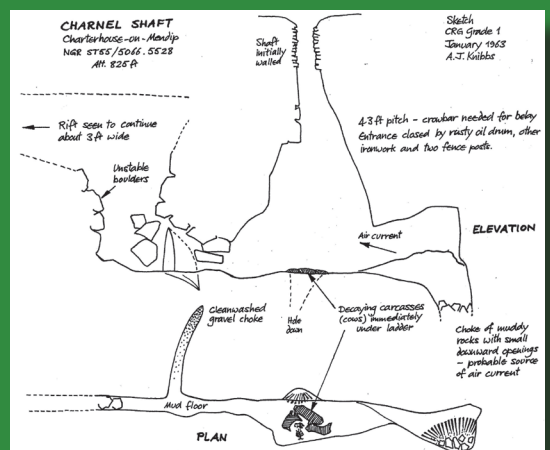 CHARNEL SHAFT
Charterhouse-on-Mendip
NGR ST55/5066.5528
Alt. 825ft
Shaft
initially
walled
Sketch
CRG Grade 1
January 1963
A.J. Knibbs
43ft pitch - crowbar needed for belay
Entrance closed by rusty oil drum, other
ironwork and two fence posts.
Rift seen to continue
about 3ft wide
Unstable
boulders
Air current
ELEVATION
Cleanwashed
gravel choke
Hole
down
Decaying carcasses
(cows) immediately
under ladder
Choke of muddy
rocks with small
downward openings
- probable source
of air current
Mud floor
PLAN